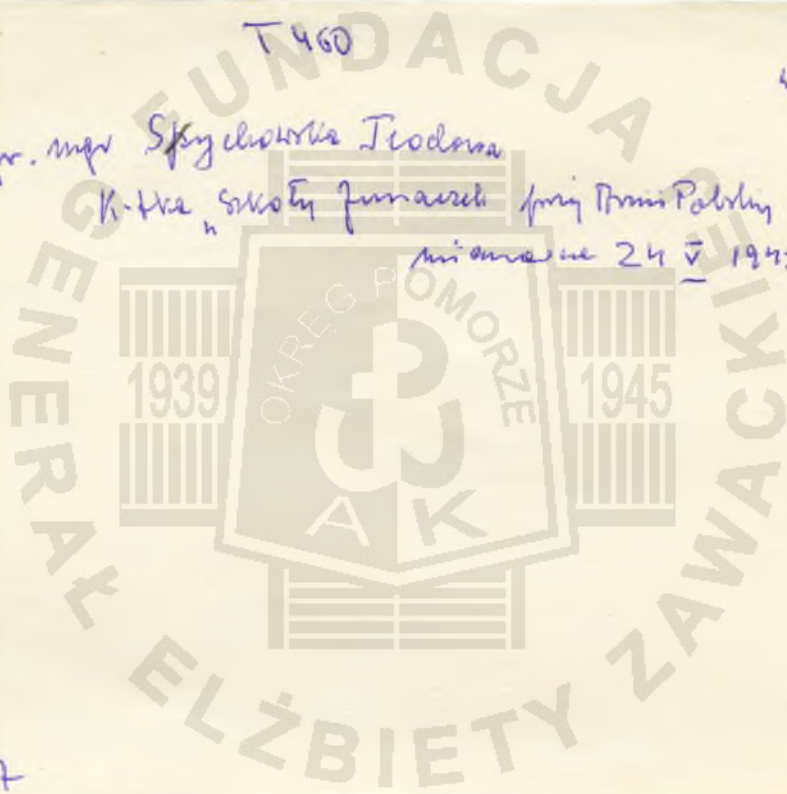 T 460
mgr Spychowska Teodora
K-tka "Szkoły Junaczek przy Armii Polskiej
mianowana 24 V 194
FUNDACJA
GENERAŁ ELŻBIETY ZAWACKIE
OKRĘG POMORZE
1939
1945
AK